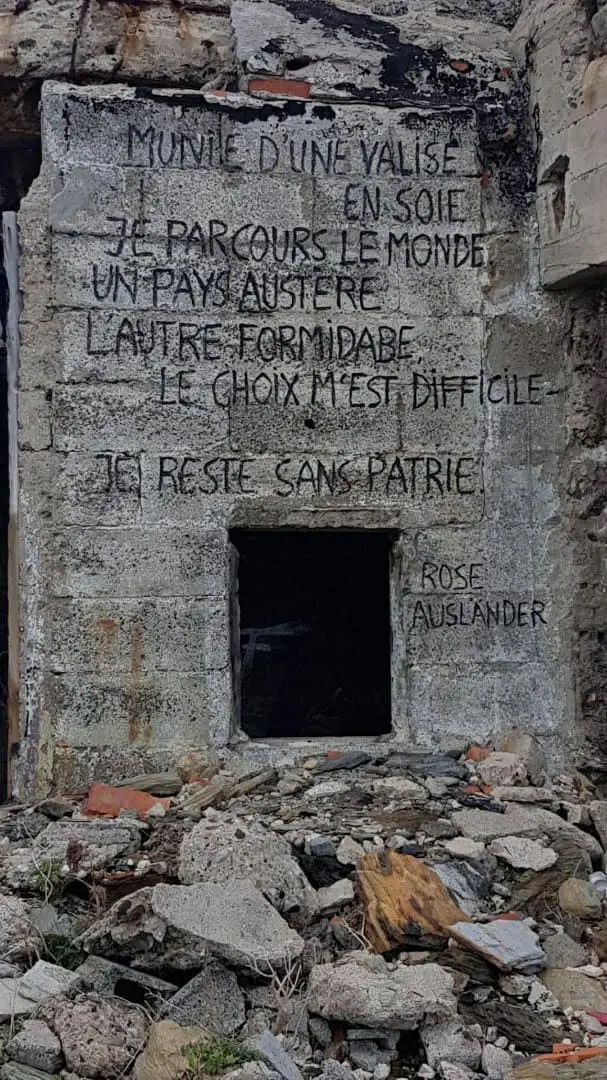 MUNIE D'UNE VALISE
EN SOIE
JE PARCOURS LE MONDE
UN PAYS AUSTÈRE
L'AUTRE FORMIDABE,
LE CHOIX M'EST DIFFICILE-
JE RESTE SANS PATRIE.
ROSE
AUSLÄNDER